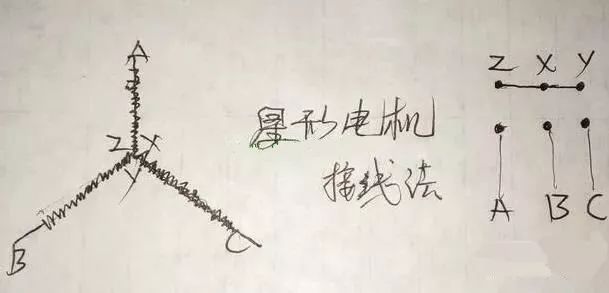 A
Z X
Y
B
C
星形电机
接线法
Z X Y
A B C